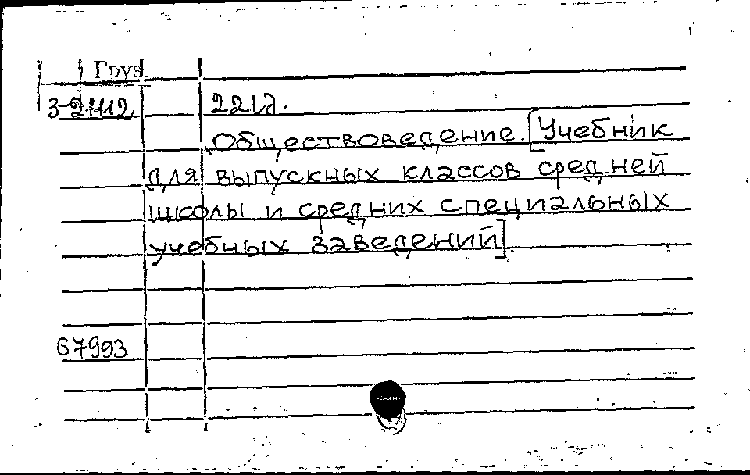 Груз
3-2412 221л.
Обществоведение. [Учебник
для выпускных классов средней
школы и средних специальных
учебных заведений]
67993